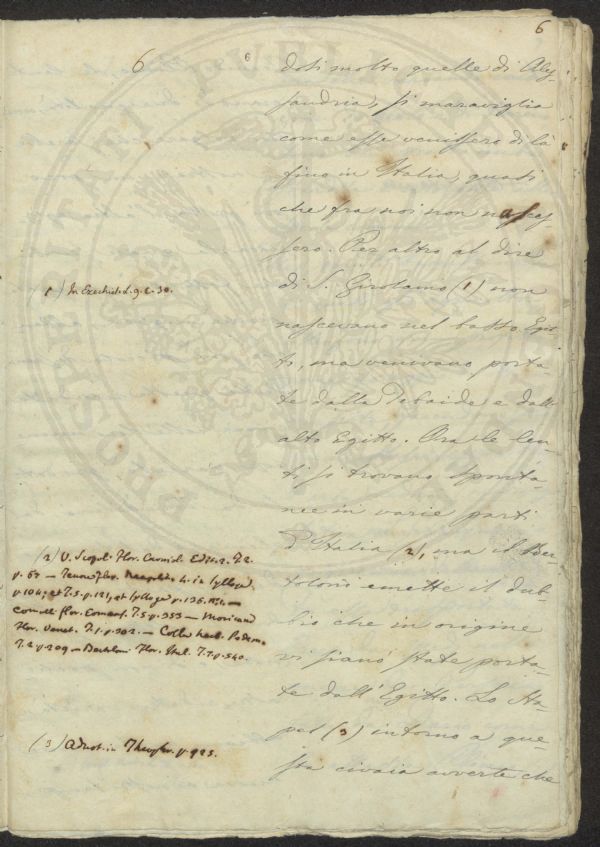 6
6
6
doti molto quelle di Ales-
sandria, si maraviglia
come esse venissero di là
fino in Italia, quasi
che fra noi non nasces-
sero. Per altro al dire
di S. Girolamo (1) non
nascevano nel basso Egit-
to, ma venivano porta-
te dalla Tebaide e dall'
alto Egitto. Ora le len-
ti si trovano sponta-
nee in varie parti
d'Italia (2), ma il Ber-
toloni emette il dub-
bio che in origine
vi siano state porta-
te dall'Egitto. Lo Sta-
pel (3) intorno a que-
sta civaia avverte che
1) In Ezechiel. l. 9. c. 30.
(2) V. Scopoli Flor. Carniol. Edit. 2. T. 2.
p. 63 — Tenore Flor. Neapolit. 4. in Sylloge
p. 104; et T. 5. p. 121, et Sylloge p. 136.
Comolli flor. Comens. T. 5. p. 353 — Moricand
Flor. Venet. T. 1. p. 302. — Colla herb. Pedem.
T. 2. p. 209 — Bertoloni Flor. Ital. T. 7. p. 540.
(3) Adnot. in Theophr. p. 925.
PROSPERITATI PUBLICAE